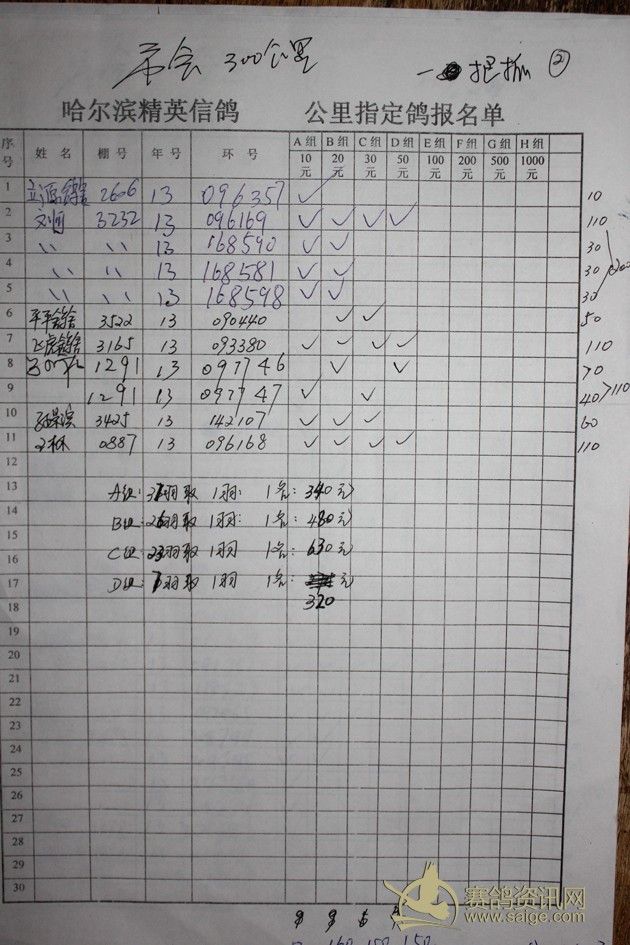 市会 300公里 一 把抓 ②
哈尔滨精英信鸽 公里指定鸽报名单
序号 姓名 棚号 年号 环号 A组 10元 B组 20元 C组 30元 D组 50元 E组 100元 F组 200元 G组 500元 H组 1000元
1 2606 13 096357 ✓ 10
2 3232 13 096169 ✓ ✓ ✓ ✓ 110
3 〃 〃 13 168590 ✓ ✓ 30
4 〃 〃 13 168581 ✓ ✓ 30 200
5 〃 〃 13 168598 ✓ ✓ 30
6 平平鸽舍 3522 13 090440 ✓ ✓ 50
7 飞虎鸽舍 3165 13 093380 ✓ ✓ ✓ ✓ 110
8 1291 13 097746 ✓ ✓ 70
9 1291 13 097747 ✓ ✓ 40 110
10 3425 13 142107 ✓ ✓ ✓ 60
11 0887 13 096168 ✓ ✓ ✓ ✓ 110
12
13 A组: 羽取 1羽: 1名: 340元
14 B组: 26羽取 1羽: 1名: 480元
15
16 C组: 23羽取 1羽 1名: 630元
17 D组: 羽取 1羽 1名: 元
18 320
19
20
21
22
23
24
25
26
27
28
29
30
赛鸽资讯网
www.saige.com